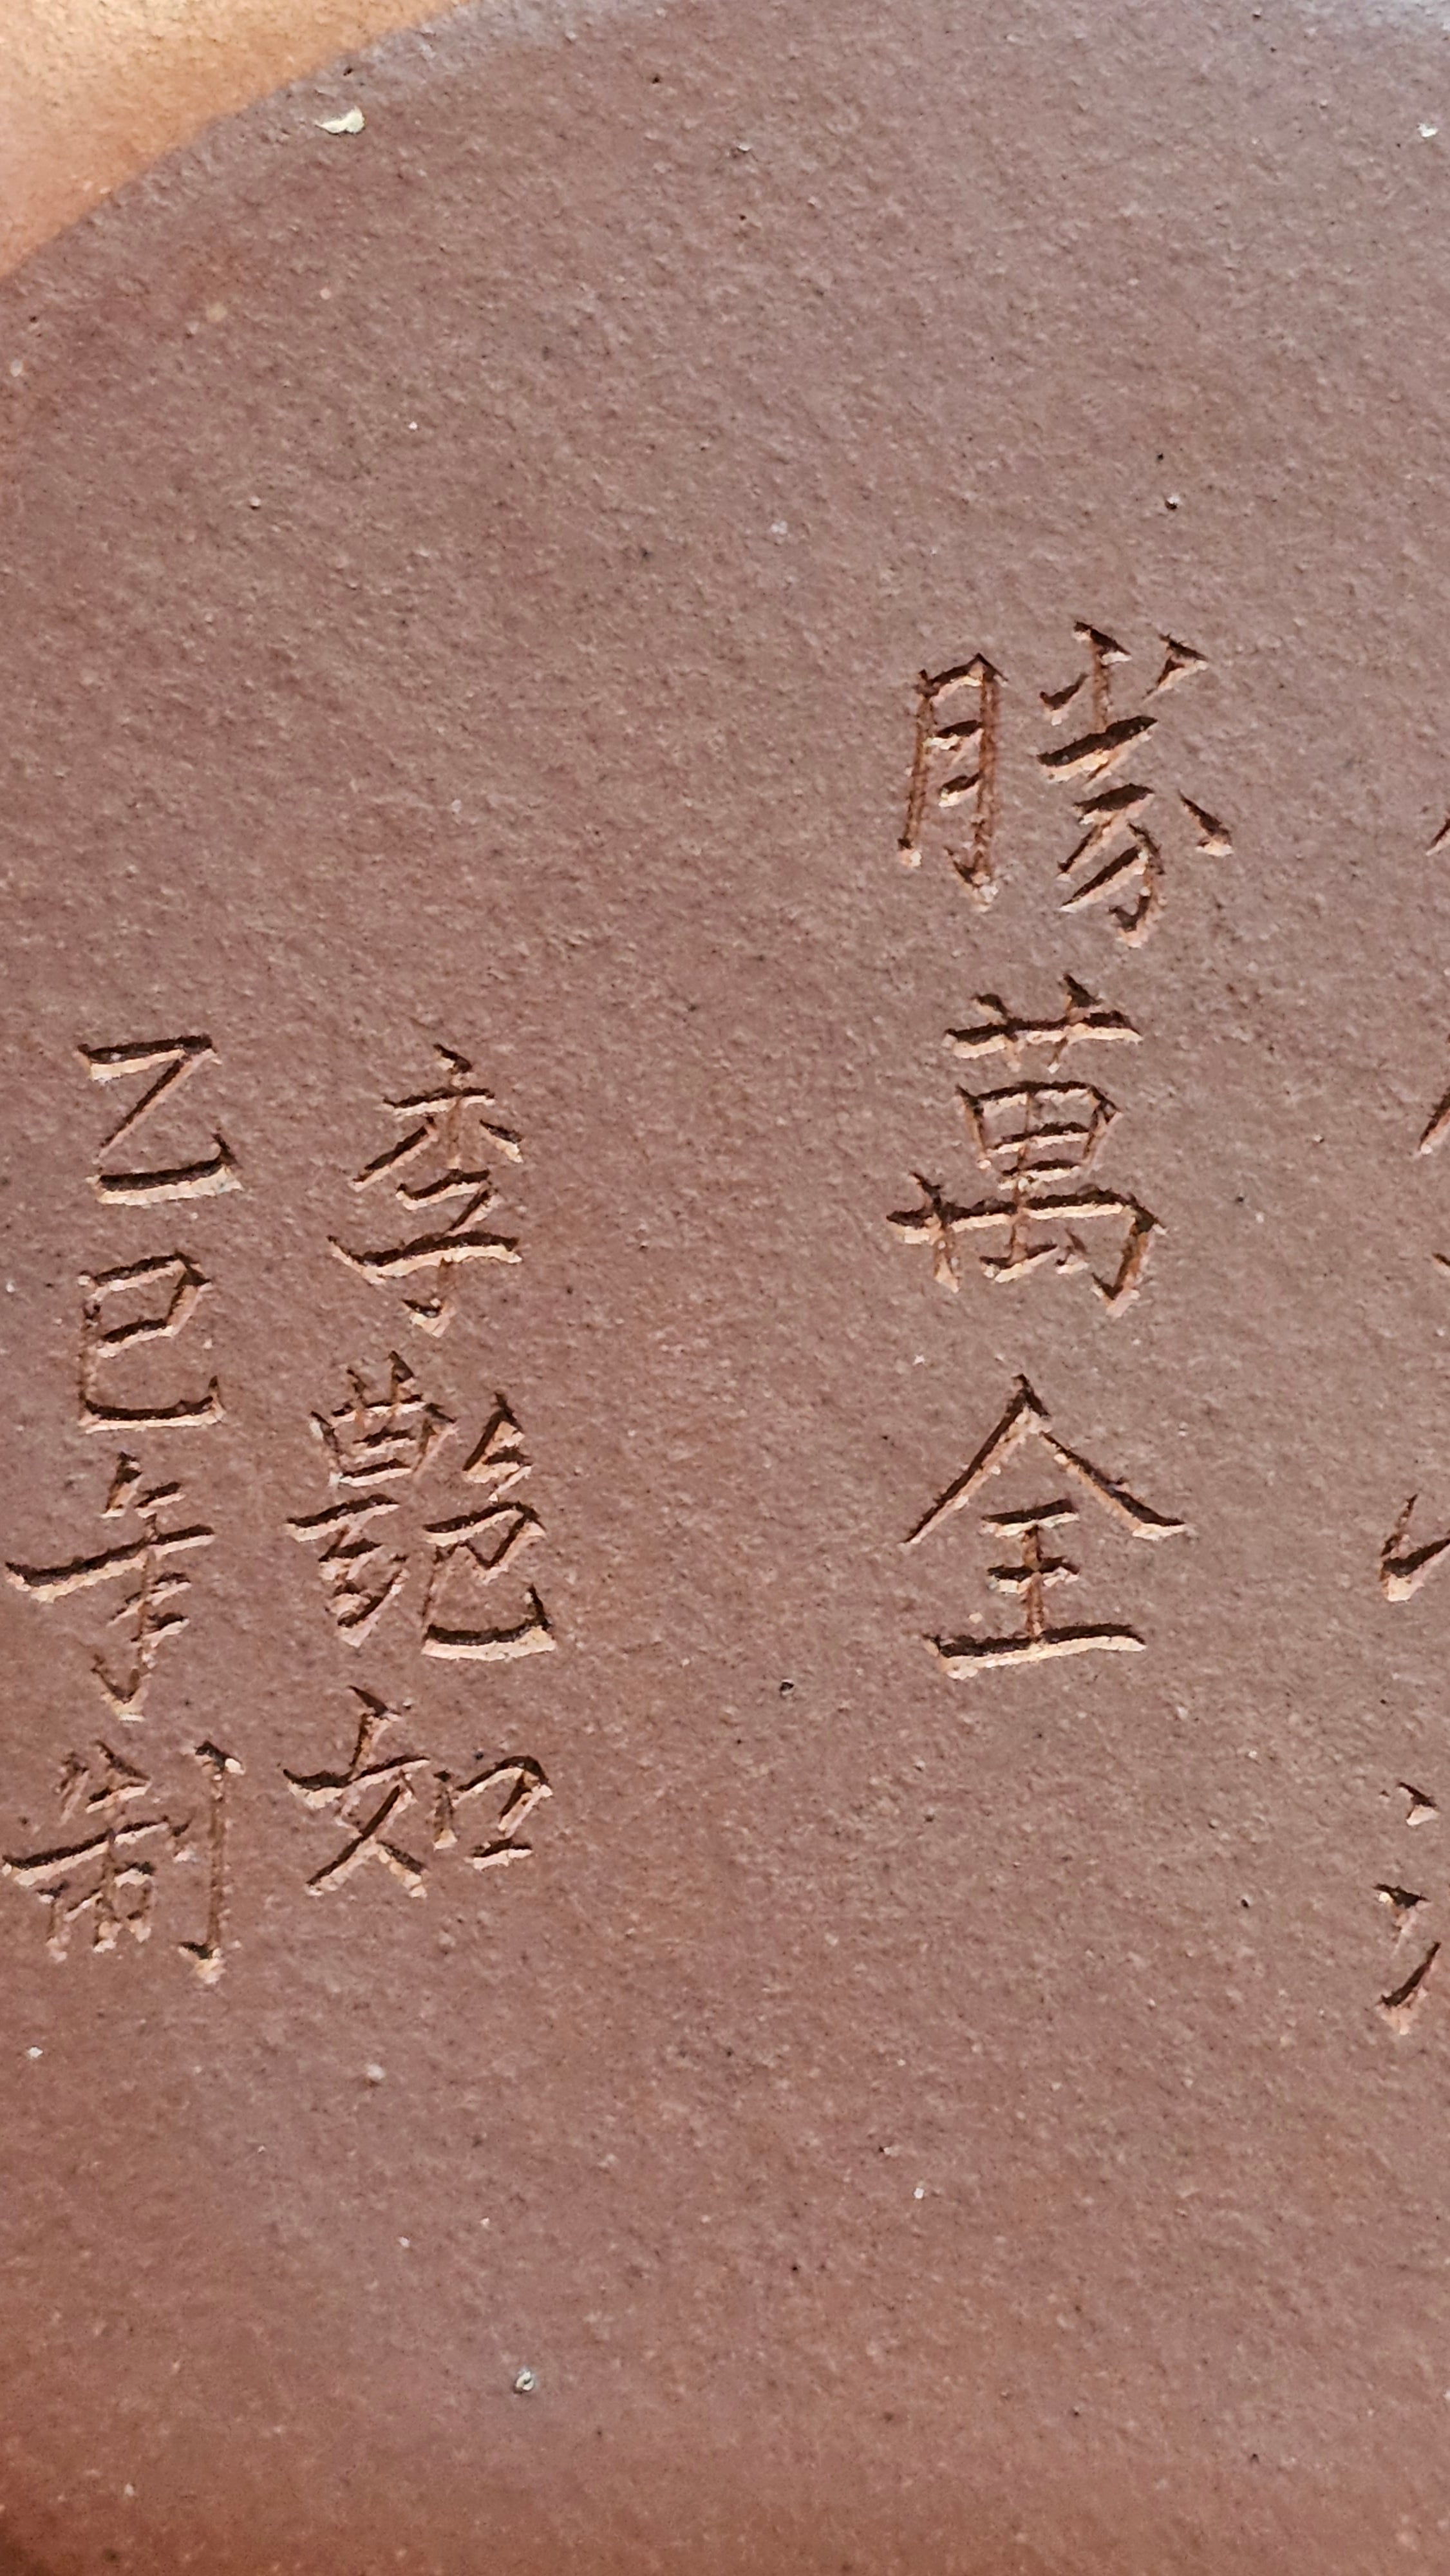 勝萬全
李艷如
乙巳年制